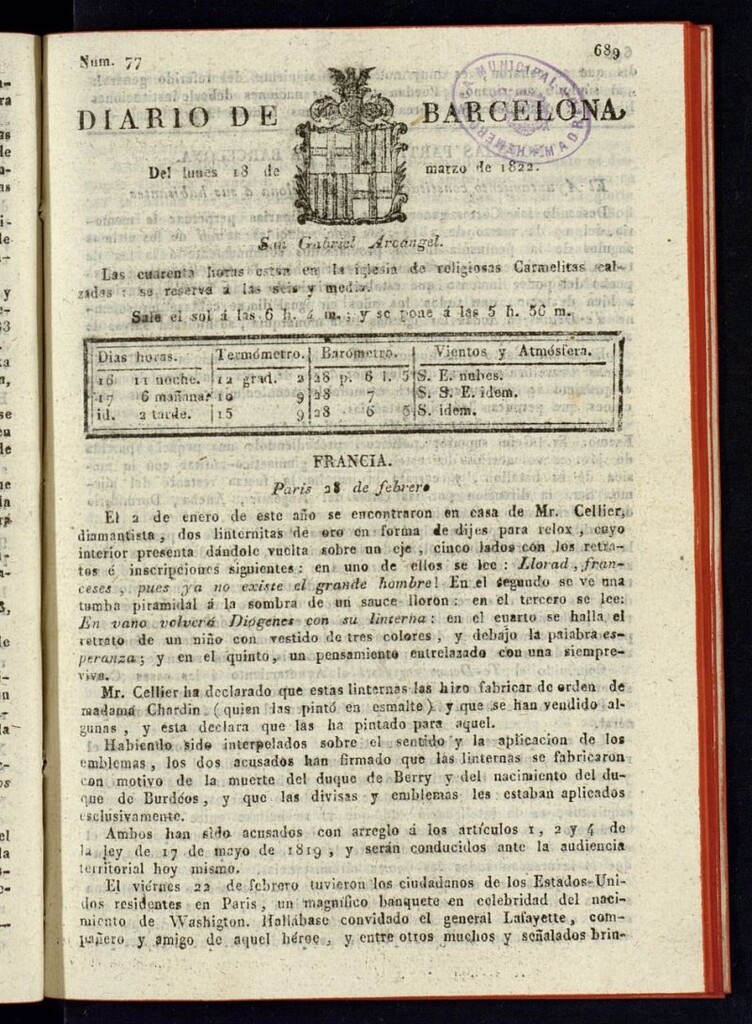 Num. 77
689
DIARIO DE BARCELONA,
Del lunes 18 de marzo de 1822.
San Gabriel Arcángel.
Las cuarenta horas estan en la iglesia de religiosas Carmelitas cal-
zadas : se reserva á las seis y media.
Sale el sol á las 6 h. 4 m. ; y se pone á las 5 h. 56 m.
Dias horas. Termómetro. Barómetro. Vientos y Atmósfera.
16 11 noche. 12 grad. 2 28 p. 6 l. 5 S. E. nubes.
17 6 mañana. 10 9 28 7 S. S. E. idem.
id. 2 tarde. 15 9 28 6 5 S. idem.
FRANCIA.
Paris 28 de febrero
El 2 de enero de este año se encontraron en casa de Mr. Cellier,
diamantista, dos linternitas de oro en forma de dijes para relox, cuyo
interior presenta dándole vuelta sobre un eje, cinco lados con los retra-
tos é inscripciones siguientes: en uno de ellos se lee: Llorad, fran-
ceses, pues ya no existe el grande hombre! En el segundo se ve una
tumba piramidal á la sombra de un sauce lloron: en el tercero se lee:
En vano volverá Diógenes con su linterna: en el cuarto se halla el
retrato de un niño con vestido de tres colores, y debajo la palabra es-
peranza; y en el quinto, un pensamiento entrelazado con una siempre-
viva.
Mr. Cellier ha declarado que estas linternas las hizo fabricar de orden de
madama Chardin (quien las pintó en esmalte) y que se han vendido al-
gunas, y esta declara que las ha pintado para aquel.
Habiendo sido interpelados sobre el sentido y la aplicacion de los
emblemas, los dos acusados han firmado que las linternas se fabricaron
con motivo de la muerte del duque de Berry y del nacimiento del du-
que de Burdéos, y que las divisas y emblemas les estaban aplicados
esclusivamente.
Ambos han sido acusados con arreglo á los artículos 1, 2 y 4 de
la ley de 17 de mayo de 1819, y serán conducidos ante la audiencia
territorial hoy mismo.
El viérnes 22 de febrero tuvieron los ciudadanos de los Estados-Uni-
dos residentes en Paris, un magnífico banquete en celebridad del naci-
miento de Washigton. Hallábase convidado el general Lafayette, com-
pañero y amigo de aquel héroe, y entre otros muchos y señalados brin-